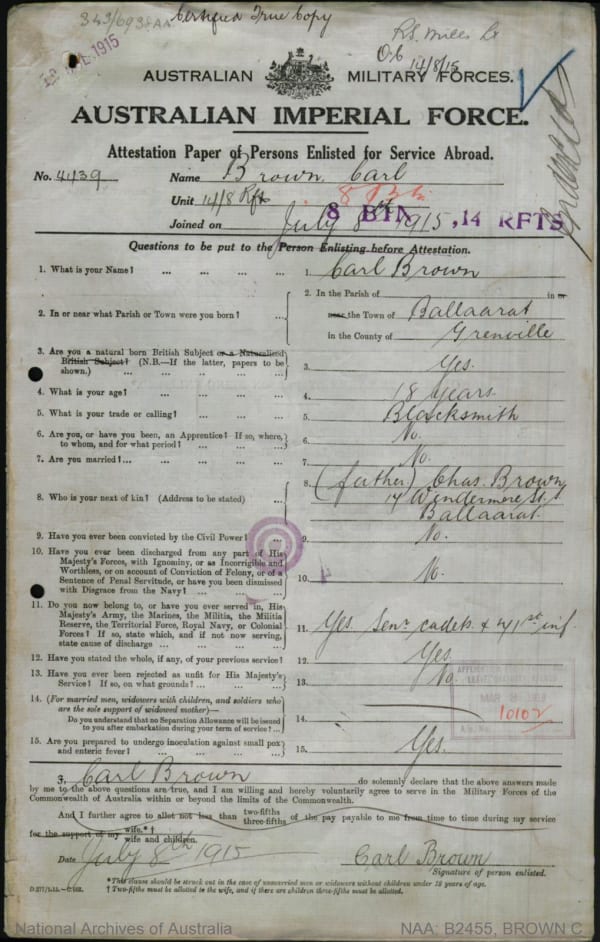 343/6938AA Certified True Copy
1915
14/8/15
AUSTRALIAN MILITARY FORCES.
AUSTRALIAN IMPERIAL FORCE.
Attestation Paper of Persons Enlisted for Service Abroad.
No. 4439 Name Brown Carl
Unit 14/8 Rfts 8 Btn
8 BTN, 14 RFTS
Joined on July 8th 1915
Questions to be put to the Person Enlisting before Attestation.
1. What is your Name? ... ... ... ... 1. Carl Brown
2. In or near what Parish or Town were you born? ... 2. In the Parish of in or
near the Town of Ballaarat
in the County of Grenville
3. Are you a natural born British Subject or a Naturalised
British Subject? (N.B.—If the latter, papers to be
shown.) ... ... ... ... ... 3. Yes.
4. What is your age? ... ... ... ... 4. 18 years.
5. What is your trade or calling? ... ... ... 5. Blacksmith
6. Are you, or have you been, an Apprentice? If so, where,
to whom, and for what period? ... ... ... 6. No.
7. Are you married?... ... ... ... ... 7. No.
8. Who is your next of kin? (Address to be stated) ... 8. (father) Chas. Brown
14 Windermere St
Ballaarat.
9. Have you ever been convicted by the Civil Power? ... 9. No.
10. Have you ever been discharged from any part of His
Majesty's Forces, with Ignominy, or as Incorrigible and
Worthless, or on account of Conviction of Felony, or of a
Sentence of Penal Servitude, or have you been dismissed
with Disgrace from the Navy? ... ... ... 10. No.
11. Do you now belong to, or have you ever served in, His
Majesty's Army, the Marines, the Militia, the Militia
Reserve, the Territorial Force, Royal Navy, or Colonial
Forces? If so, state which, and if not now serving,
state cause of discharge ... ... ... ... 11. Yes. Senr cadets & 71st inf
12. Have you stated the whole, if any, of your previous service? 12. Yes.
13. Have you ever been rejected as unfit for His Majesty's
Service? If so, on what grounds? ... ... ... 13. No.
14. (For married men, widowers with children, and soldiers who
are the sole support of widowed mother)—
Do you understand that no Separation Allowance will be issued
to you after embarkation during your term of service? ... 14.
10102
15. Are you prepared to undergo inoculation against small pox
and enteric fever? ... ... ... ... 15. Yes.
I, Carl Brown do solemnly declare that the above answers made
by me to the above questions are true, and I am willing and hereby voluntarily agree to serve in the Military Forces of the
Commonwealth of Australia within or beyond the limits of the Commonwealth.
And I further agree to allot not less than two-fifths
three-fifths of the pay payable to me from time to time during my service
for the support of my wife.*†
wife and children.
Date July 8th 1915 Carl Brown
Signature of person enlisted.
*This clause should be struck out in the case of unmarried men or widowers without children under 18 years of age.
† Two-fifths must be allotted to the wife, and if there are children three-fifths must be allotted.
National Archives of Australia NAA: B2455, BROWN C